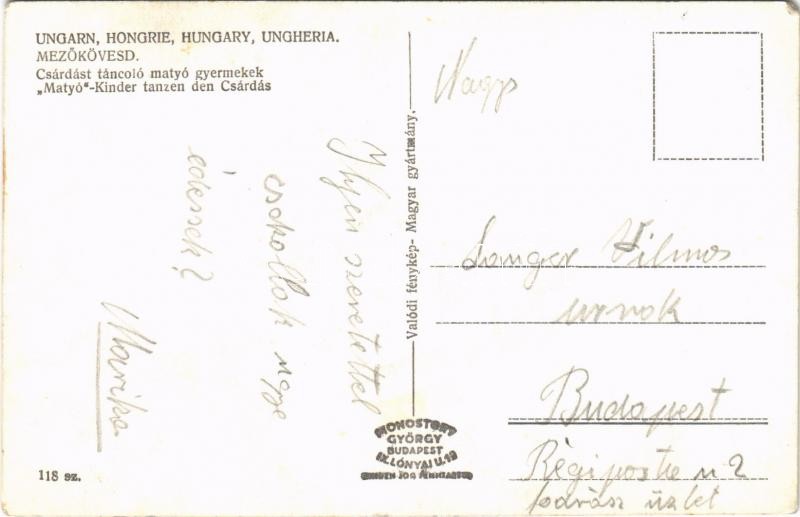 UNGARN, HONGRIE, HUNGARY, UNGHERIA.
MEZŐKÖVESD.
Csárdást táncoló matyó gyermekek
„Matyó"-Kinder tanzen den Csárdás
Ilyen szeretettel
csókollak ugye
édessek?
Marika
118 sz.
Valódi fénykép- Magyar gyártmány.
MONOSTORY
GYÖRGY
BUDAPEST
IX. LÓNYAI U. 19
MINDEN JOG FENNTARTVA
Nagys
Langer Vilmos
urnok
Budapest
Régiposta u 2
üzlet